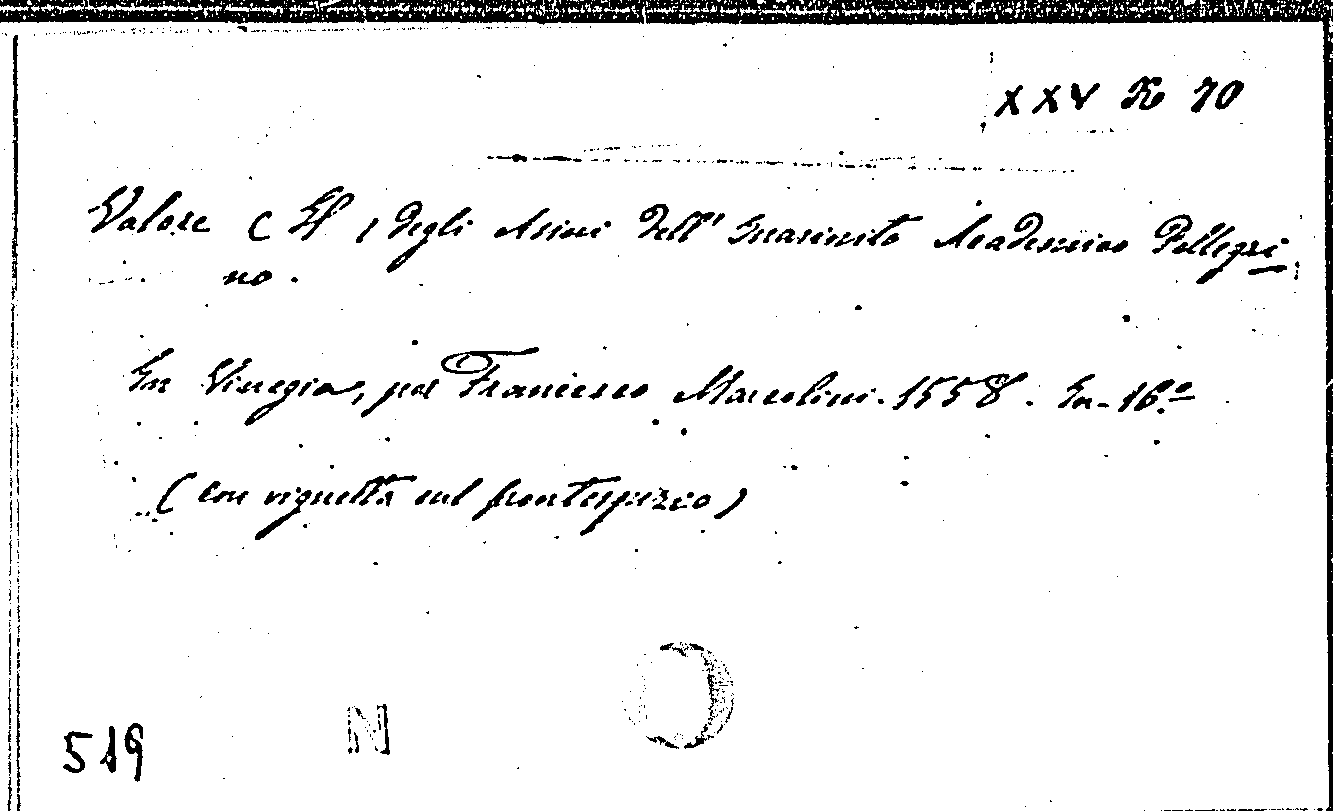 XXV K 70
Valore (Il) degli Asini dell' Inasinito Academico Pellegri
no.
In Vinegia, per Francesco Marcolini. 1558. In-16.º
(con vignetta sul frontespizio)
N
519